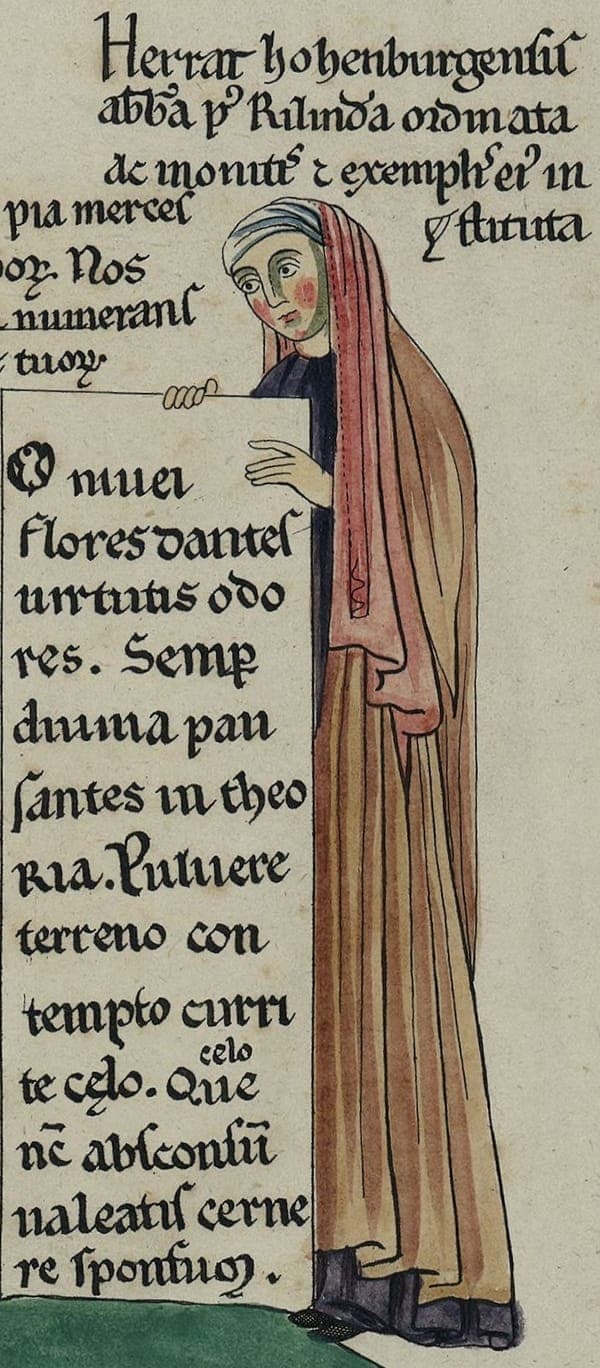 Herrat hohenburgensis
abb̄a pꝰ Rilinda ordinata
ac monitˢ ⁊ exemplˢ eiꝰ in
ꝯstituta
pia merces
oꝝ. Nos
numerans
tuoꝝ.
O niuei
flores dantes
uirtutis odo
res. Semꝑ
diuina pau
santes in theo
ria. Puluere
terreno con
tempto curri
celo
te cęlo. Que
nc̄ absconsū
ualeatis cerne
re sponsuꝫ.